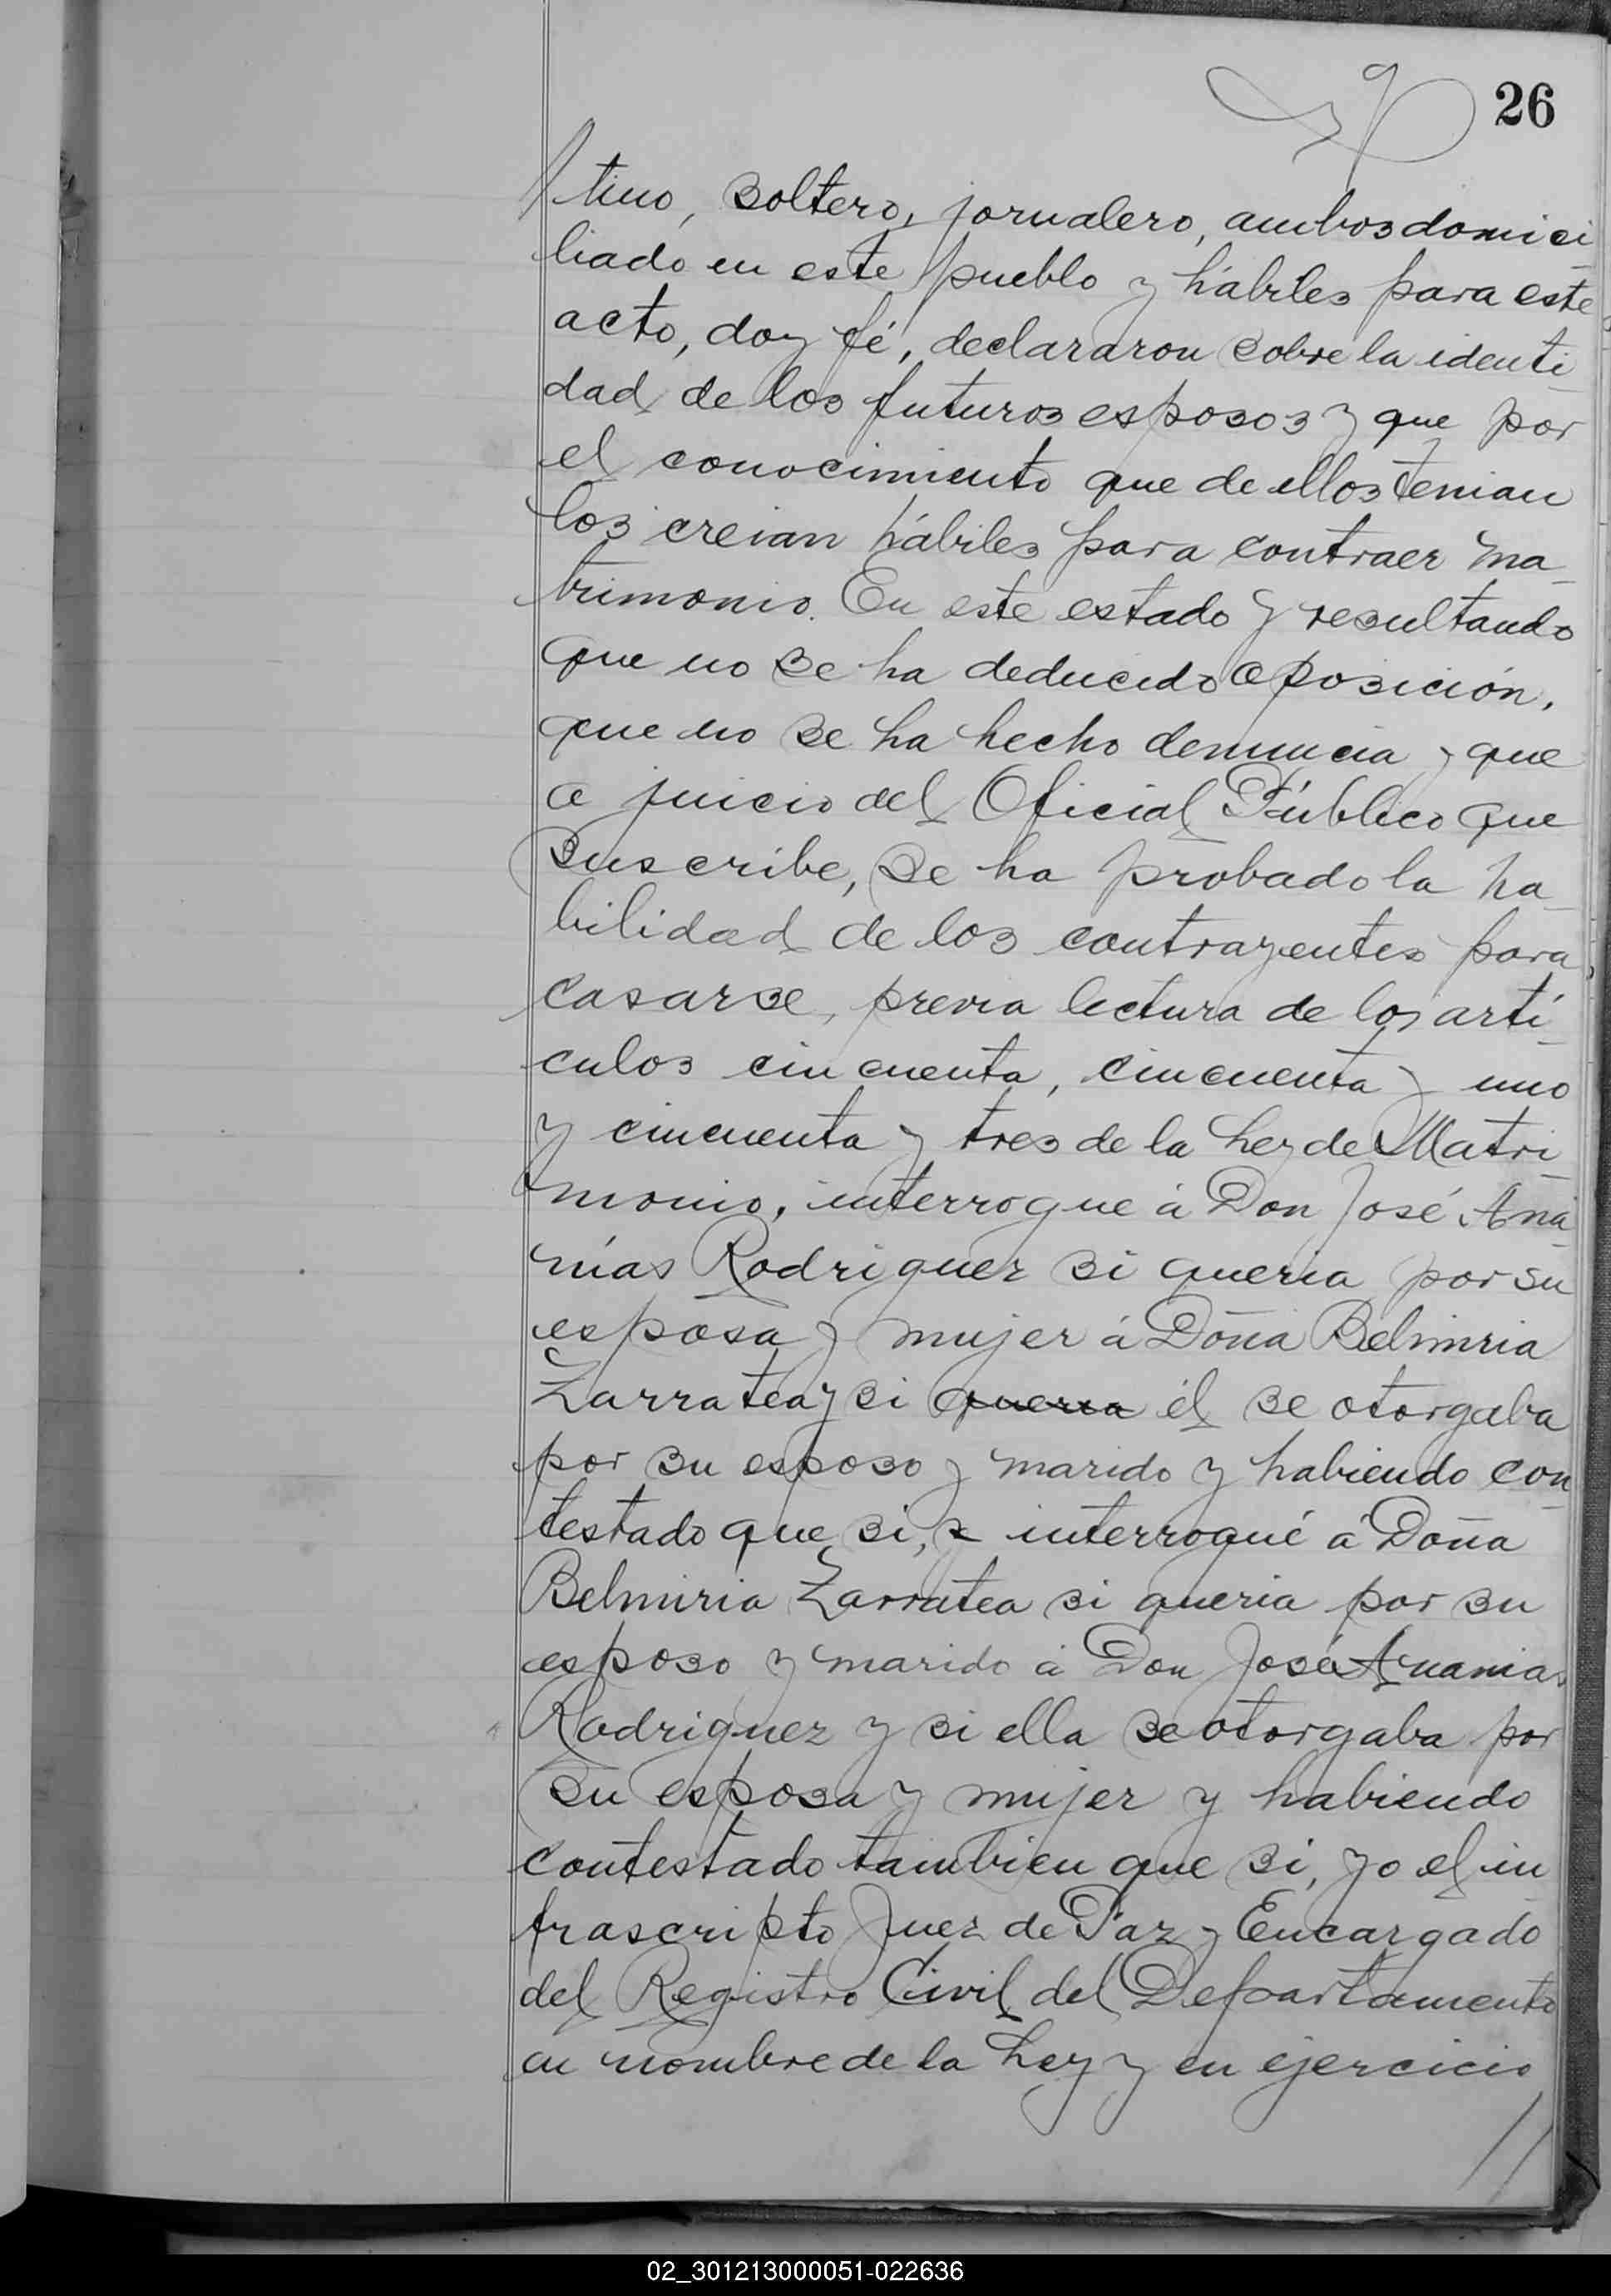 26
tino, soltero, jornalero, ambos domici
liado en este pueblo y hábiles para este
acto, doy fé, declararon sobre la identi
dad de los futuros esposos y que por
el conocimiento que de ellos tenian
los creian hábiles para contraer ma
trimonio. En este estado y resultando
que no se ha deducido oposición,
que no se ha hecho denuncia y que
a juicio del Oficial Público que
suscribe, se ha probado la ha
bilidad de los contrayentes para
casarse, previa lectura de los artí
culos cincuenta, cincuenta y uno
y cincuenta y tres de la Ley de Matri
monio, interrogue á Don José Ana
nías Rodriguez si queria por su
esposa y mujer á Doña Belmiria
Zarratea y si queria él se otorgaba
por su esposo y marido y habiendo con
testado que si, y interrogué á Doña
Belmiria Zarratea si queria por su
esposo y marido á Don José Ananias
Rodriguez y si ella se otorgaba por
su esposa y mujer y habiendo
contestado tambien que si, yo el in
frascripto Juez de Paz y Encargado
del Registro Civil del Departamento
en nombre de la Ley y en ejercicio
//
02_301213000051-022636